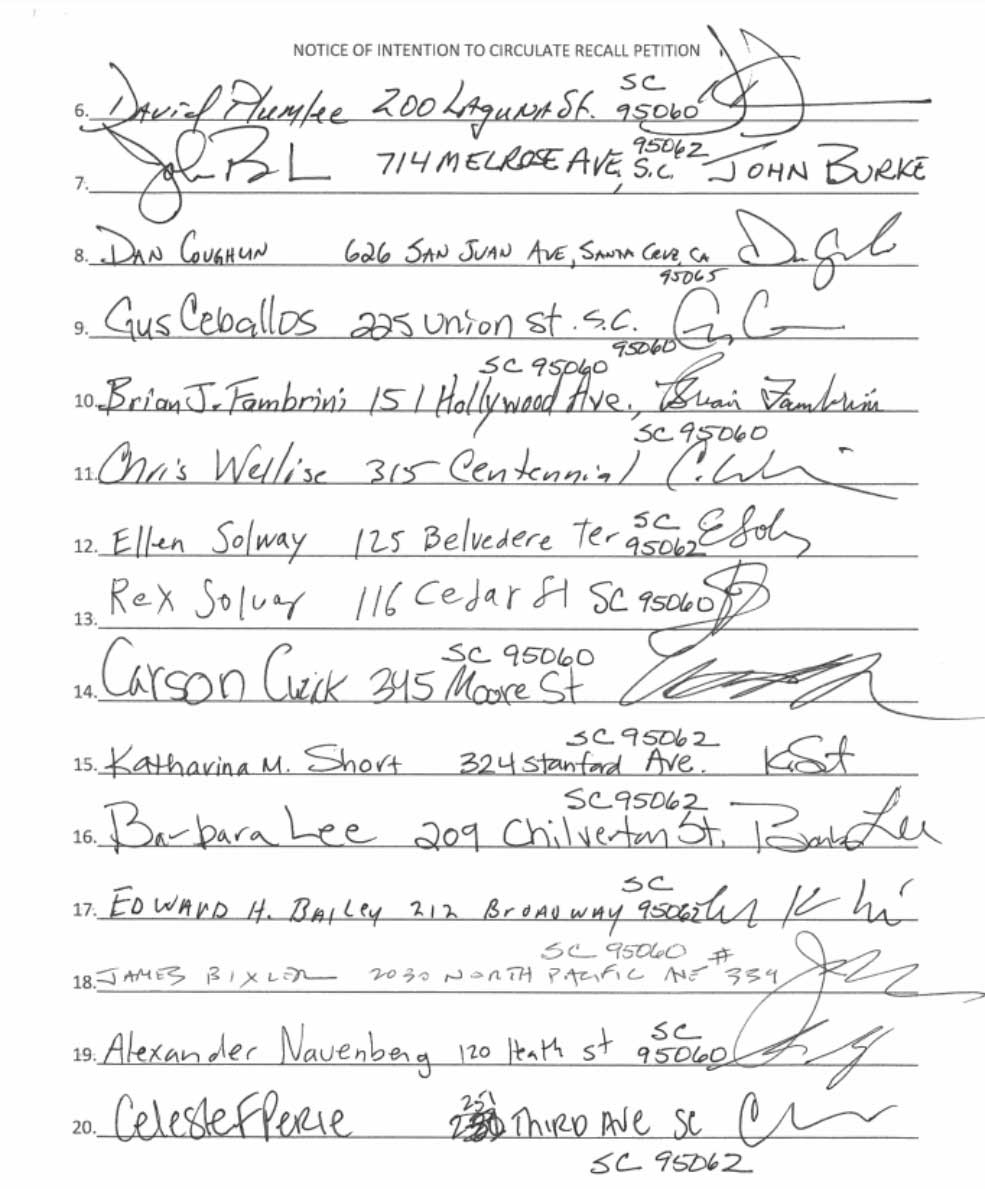 NOTICE OF INTENTION TO CIRCULATE RECALL PETITION
SC
6. David Plumlee 200 Laguna St. 95060
95062
7. 714 MELROSE AVE, S.C. JOHN BURKE
8. DAN COUGHLIN 626 SAN JUAN AVE, SANTA CRUZ, CA
95065
9. Gus Ceballos 225 Union St. S.C.
95060
SC 95060
10. Brian J. Fambrini 151 Hollywood Ave., Brian Fambrini
SC 95060
11. Chris Wellise 315 Centennial
SC
12. Ellen Solway 125 Belvedere Ter 95062
13. Rex Solway 116 Cedar St SC 95060
SC 95060
14. Carson 345 Moore St
SC 95062
15. Katharina M. Short 324 Stanford Ave.
SC 95062
16. Barbara Lee 209 Chilverton St. Barb Lee
SC
17. EDWARD H. BAILEY 212 BROADWAY 95062
SC 95060 #
18. JAMES BIXLER 2030 NORTH PACIFIC AVE 339
SC
19. Alexander Nauenberg 120 Heath St 95060
251
20. Celeste F Perie THIRD AVE SC
SC 95062